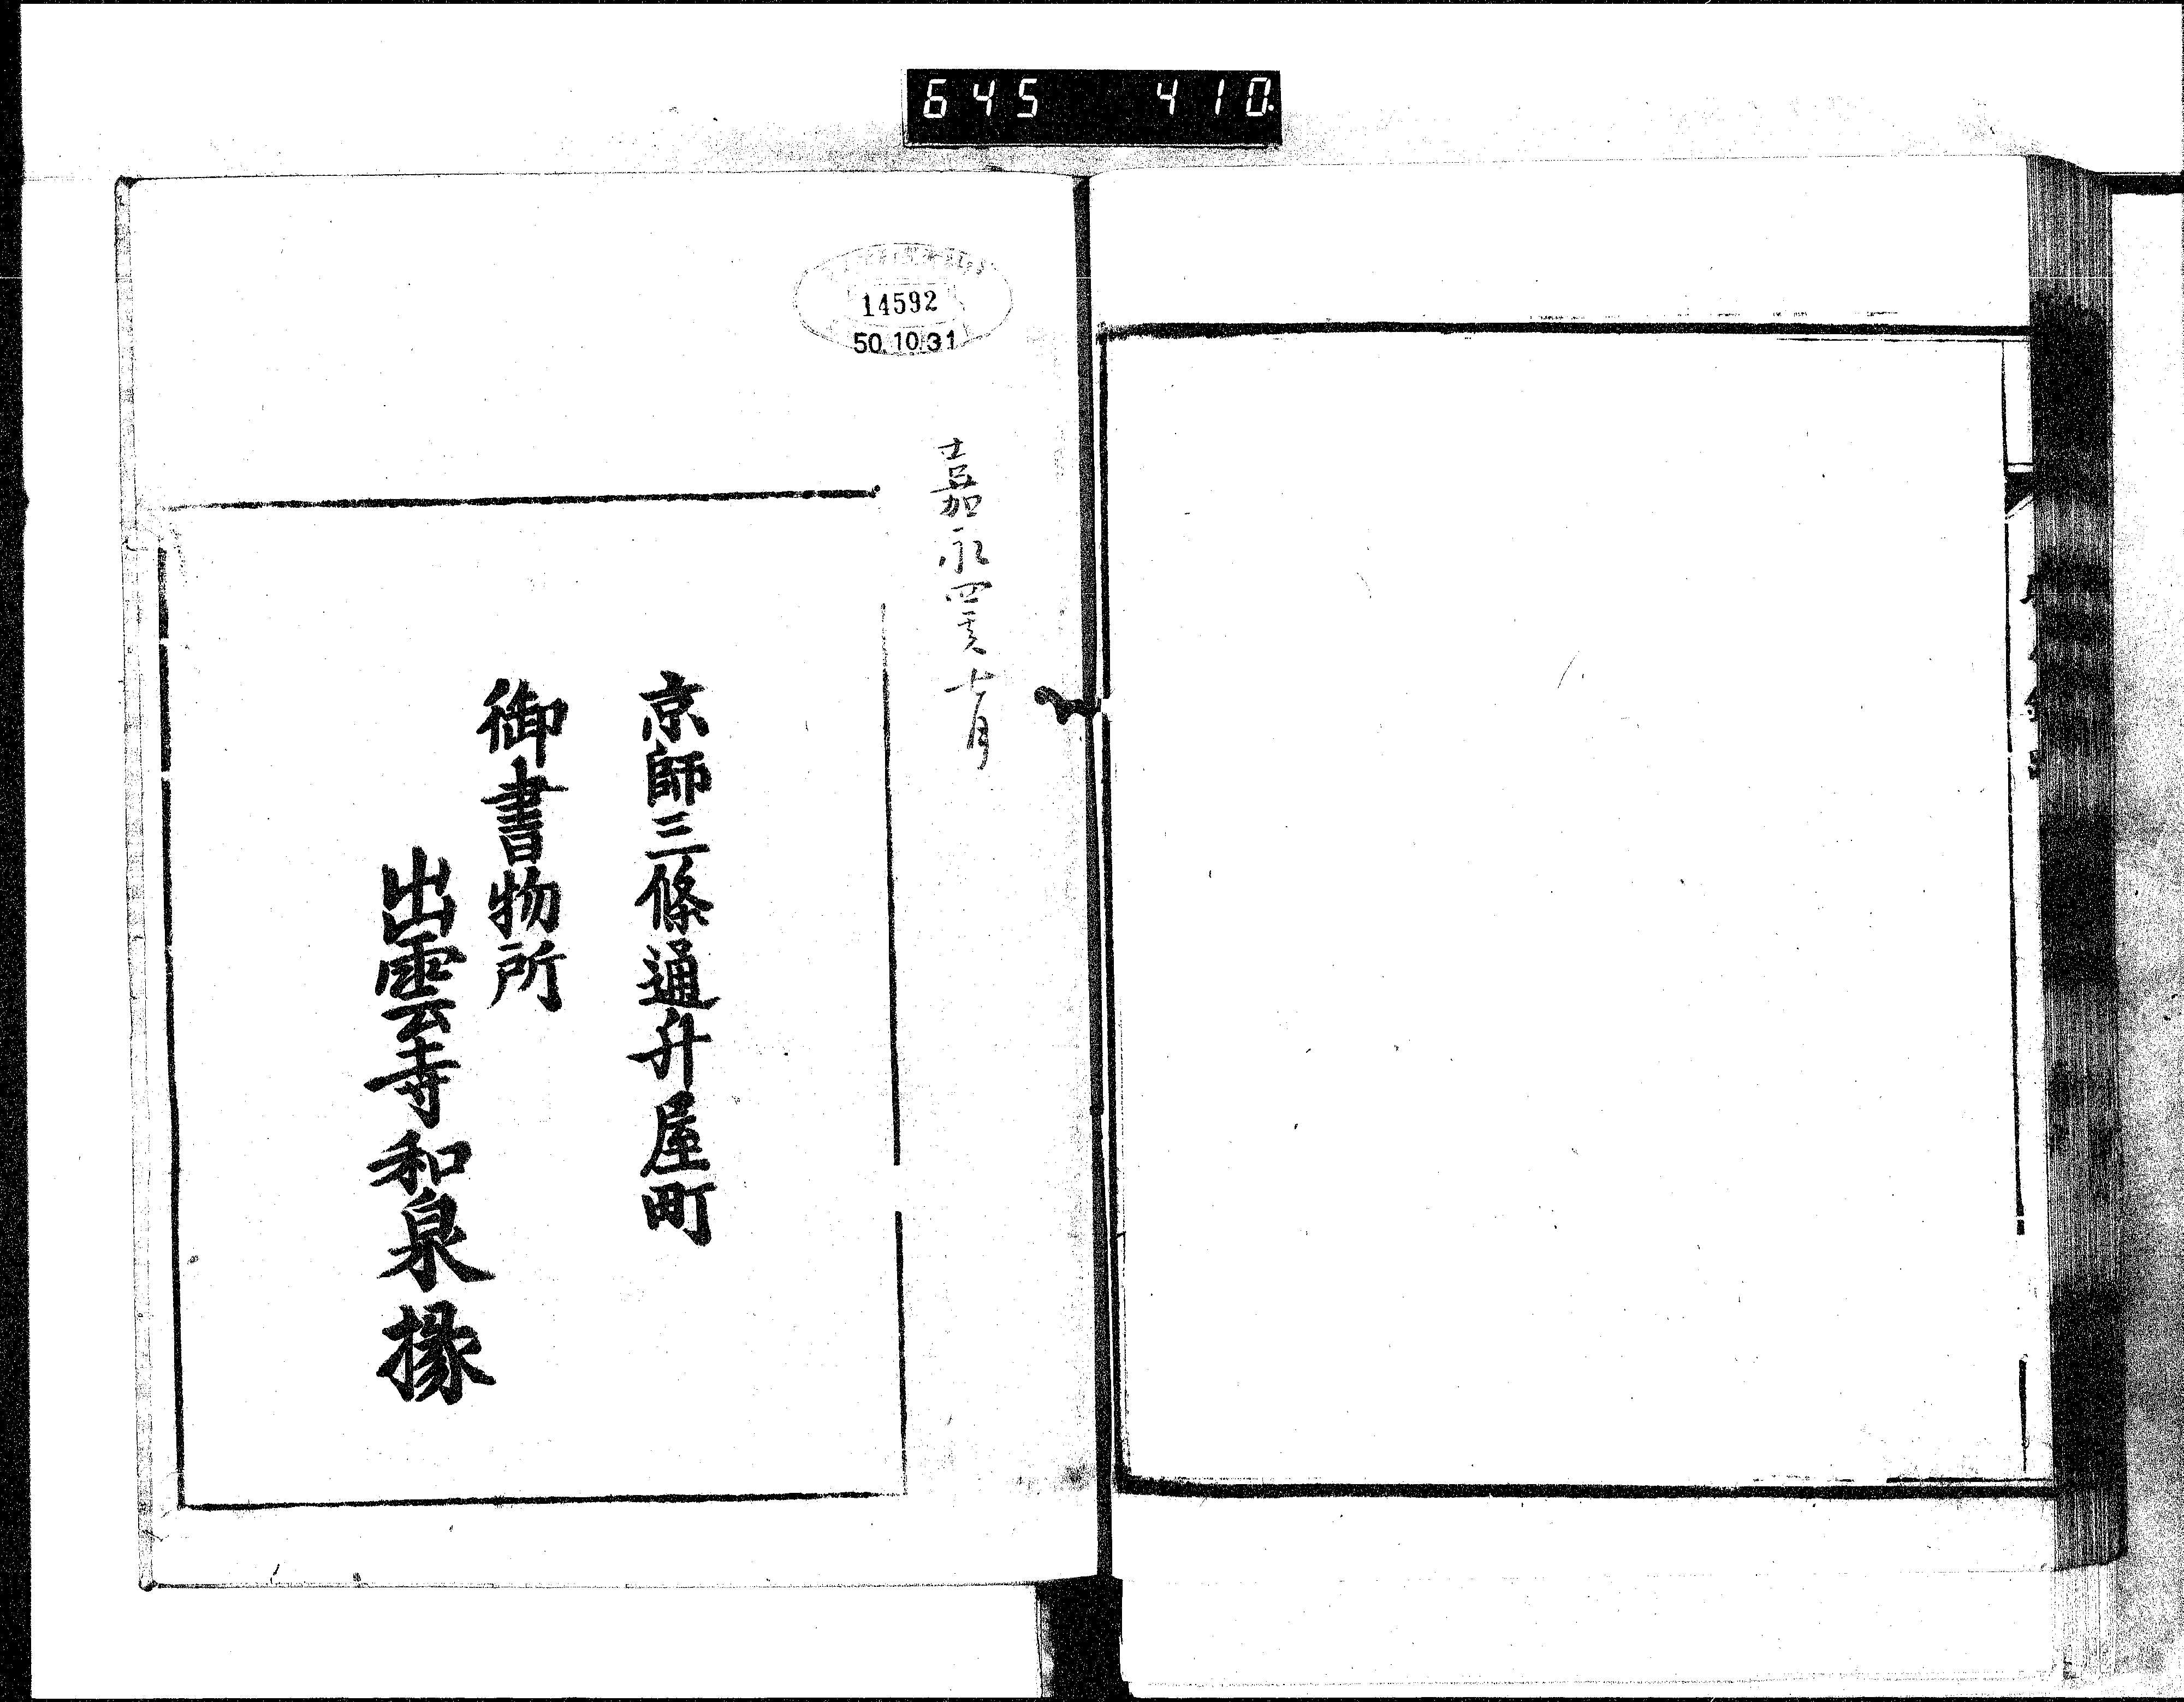 645 410
14592
50.10.31
嘉永四亥十月
京師三條通升屋町
御書物所
出雲寺和泉掾